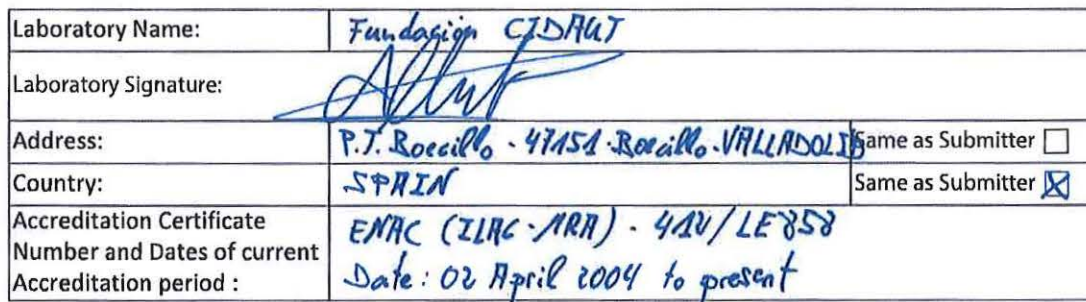 Laboratory Name: Fundación CIDAUT
Laboratory Signature:
Address: P.T. Boecillo - 47151 - Boecillo - VALLADOLID Same as Submitter ☐
Country: SPAIN Same as Submitter ☒
Accreditation Certificate
Number and Dates of current
Accreditation period :
ENAC (ILAC-MRA) - 412/LE858
Date: 02 April 2004 to present